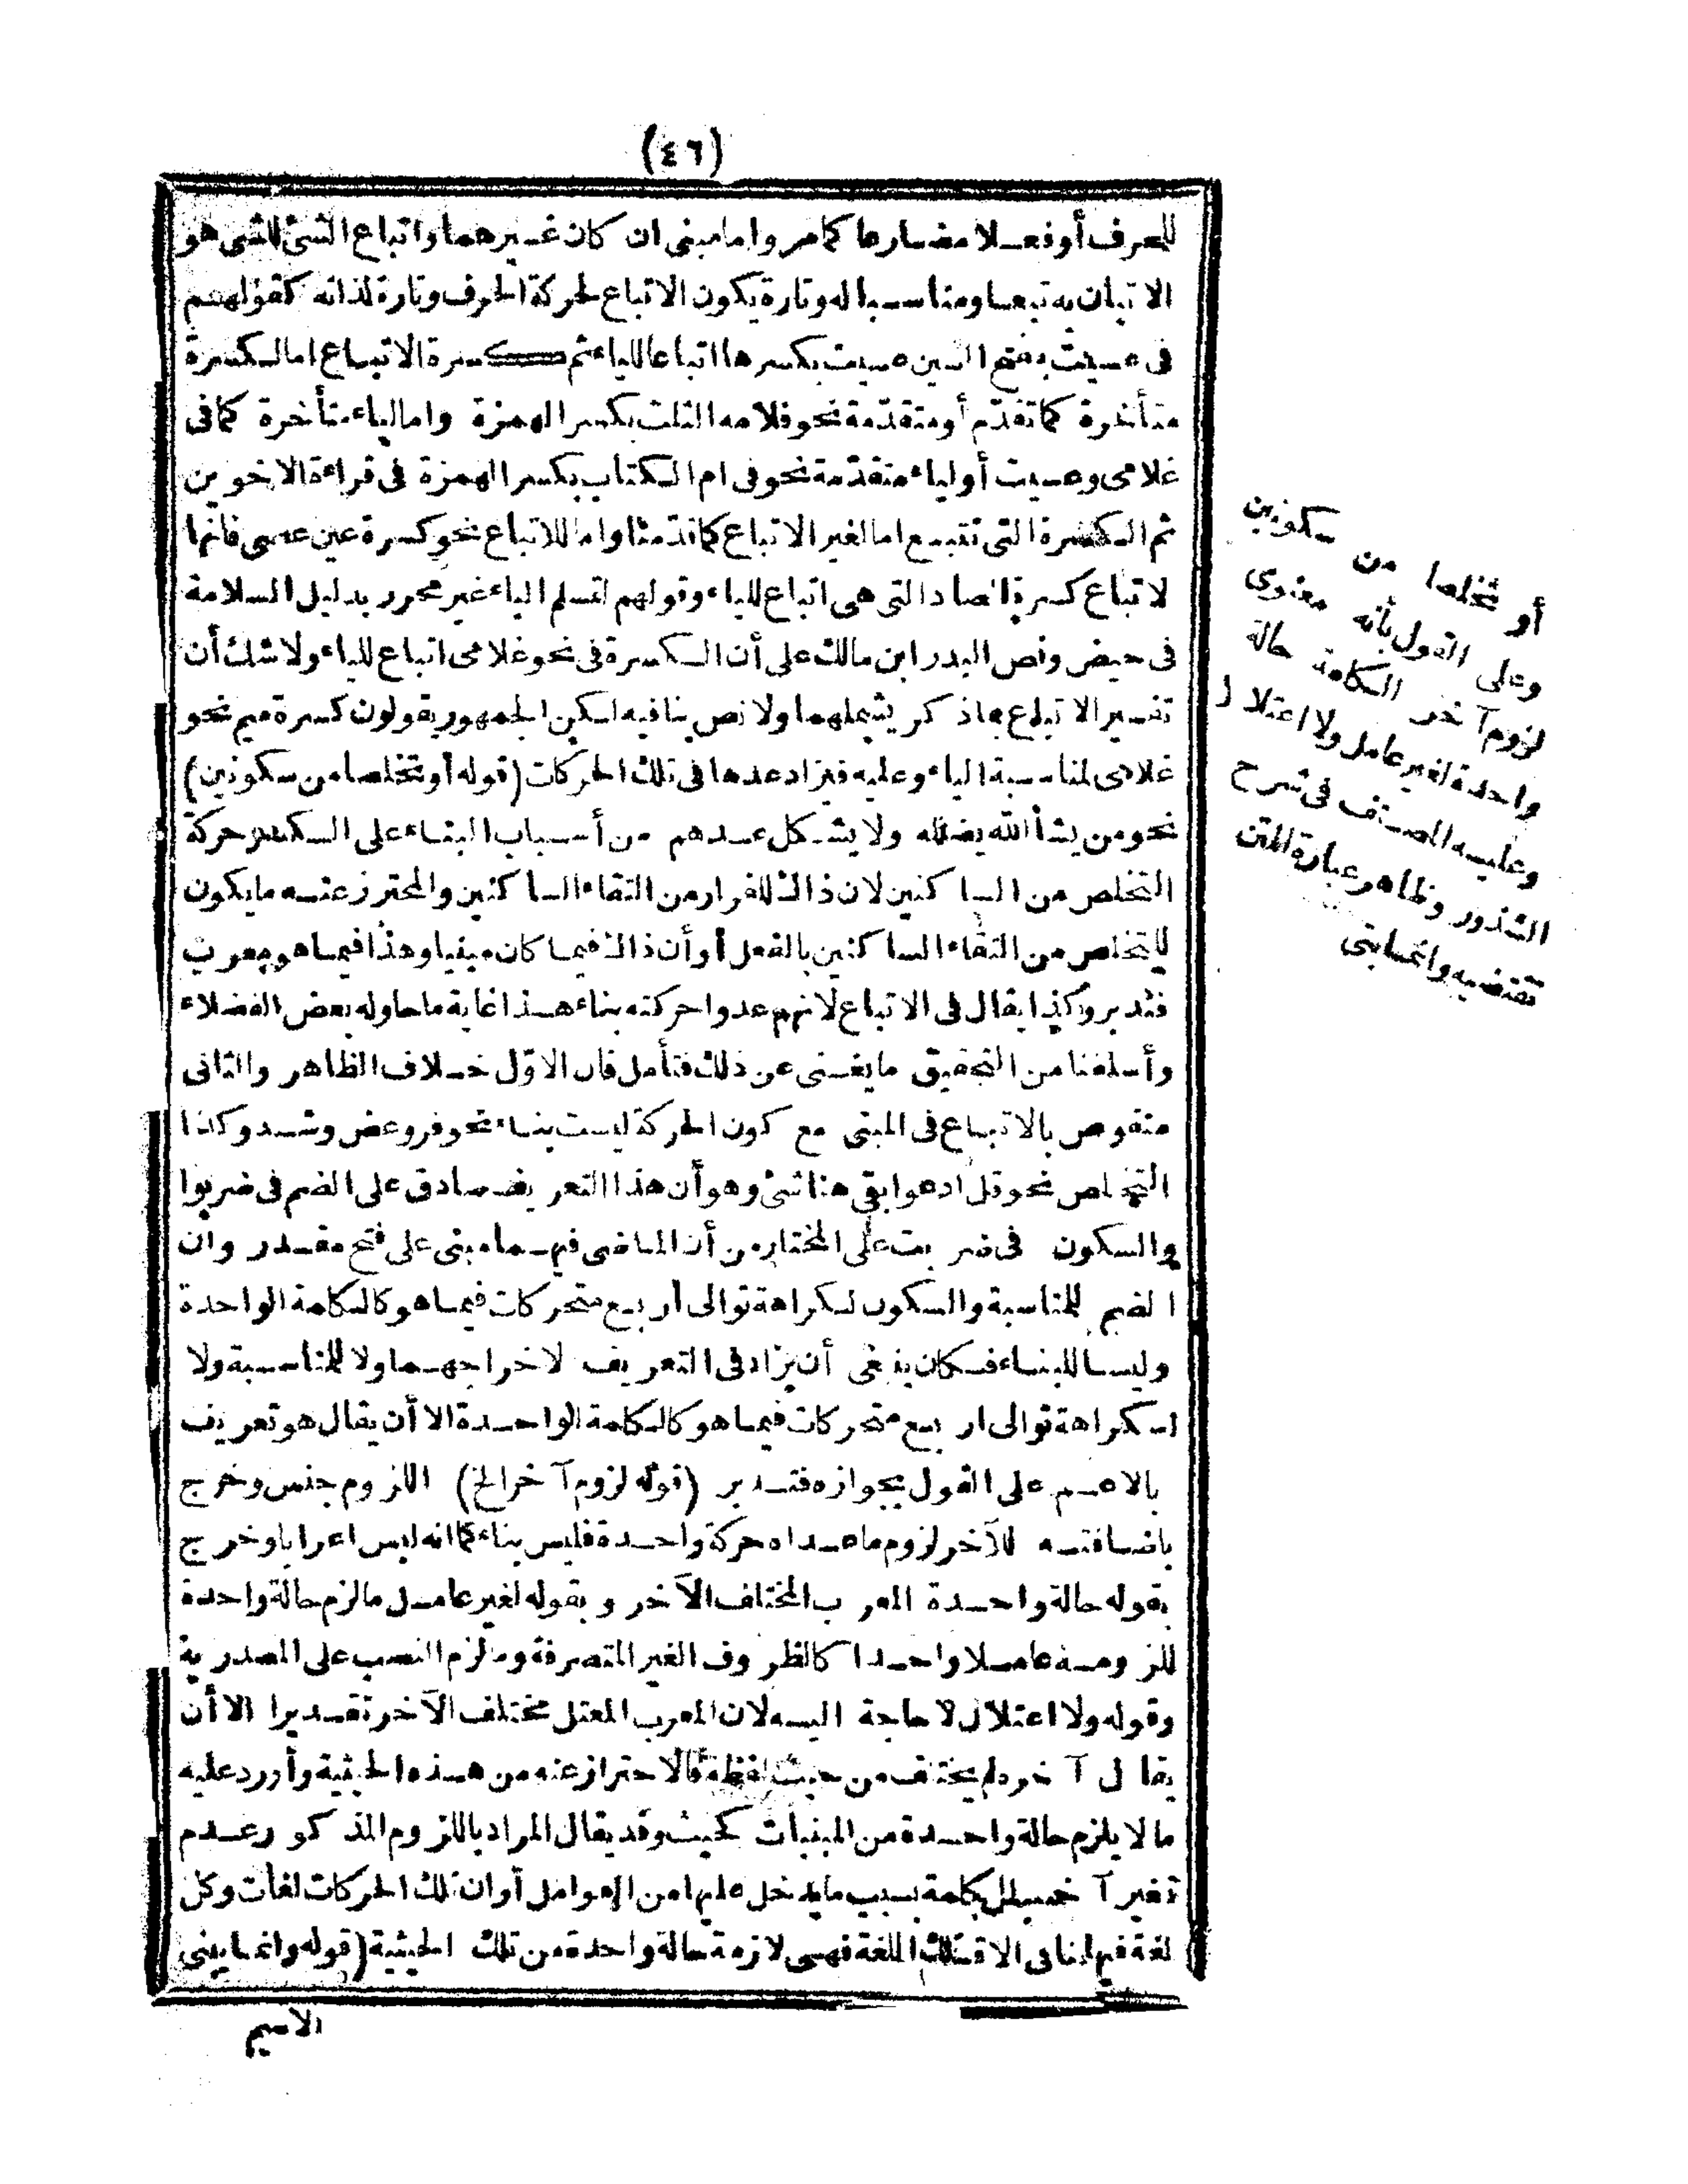 (٤٦)
للحرف أو فعلا مضارعا كما مر واما مبنى ان كان غيرهما واتباع الشئ للشئ هو
الاتيان به تبعا ومناسبا له وتارة يكون الاتباع لحركة الحرف وتارة لذاته كقولهم
فى عسيت بفتح السين عسيت بكسرها اتباعا للياء ثم كسرة الاتباع اما لكسرة
متأخرة كما تقدّم أو متقدّمة نحو فلامه الثلث بكسر الهمزة واما لياء متأخرة كما فى
غلامى وعسيت أو لياء متقدّمة نحو فى ام الكتاب بكسر الهمزة فى قراءة الاخوين
ثم الكسرة التى تتبع اما لغير الاتباع كما قدّمنا واما للاتباع نحو كسرة عين عصى فانها
لاتباع كسرة الصاد التى هى اتباع للياء وقولهم لتسلم الياء غير محرر بدليل السلامة
فى حيض ونص البدر ابن مالك على أن الكسرة فى نحو غلامى اتباع للياء ولا شك أن
تفسير الاتباع بما ذكر يشملهما ولا نص ينافيه لكن الجمهور يقولون كسرة ميم نحو
غلامى لمناسبة الياء وعليه فيزاد عدها فى تلك الحركات (قوله أو تخلصا من سكونين)
نحو من يشأ الله يضلله ولا يشكل عدهم من أسباب البناء على الكسر حركة
التخلص من الساكنين لان ذاك للفرار من التقاء الساكنين والمحترز عنه ما يكون
للتخلص من التقاء الساكنين بالفعل أو أن ذاك فيما كان مبنيا وهذا فيما هو معرب
فتدبر وكذا يقال فى الاتباع لانهم عدوا حركته بناء هذا غاية ما حاوله بعض الفضلاء
وأسلفنا من التحقيق ما يغنى عن ذلك فتأمل فان الاوّل خلاف الظاهر والثانى
منقوض بالاتباع فى المبنى مع كون الحركة ليست بناء نحو فر وعض وشد وكذا
التخلص نحو قل ادعوا بقى هنا شئ وهو أن هذا التعريف صادق على الضم فى ضربوا
والسكون فى ضربت على المختار من أن الماضى فيهما مبنى على فتح مقدر وان
الضم للمناسبة والسكون لكراهة توالى أربع متحركات فيما هو كالكلمة الواحدة
وليسا للبناء فكان ينبغى أن يزاد فى التعريف لاخراجهما ولا للمناسبة ولا
لكراهة توالى أربع متحركات فيما هو كالكلمة الواحدة الا أن يقال هو تعريف
بالاعم على القول بجوازه فتدبر (قوله لزوم آخر الخ) اللزوم جنس وخرج
باضافته للآخر لزوم ما عداه حركة واحدة فليس بناء كما انه ليس اعرابا وخرج
بقوله حالة واحدة المعرب المختلف الآخر وبقوله لغير عامل ما لزم حالة واحدة
للزومه عاملا واحدا كالظروف الغير المتصرفة وما لزم النصب على المصدرية
وقوله ولا اعتلال لا حاجة اليه لان المعرب المعتل مختلف الآخر تقديرا الا أن
يقال آخره لم يختلف من حيث لفظه فالاحتراز عنه من هذه الحيثية وأورد عليه
ما لا يلزم حالة واحدة من المبنيات كحيث وقد يقال المراد باللزوم المذكور عدم
تغير آخر الكلمة بسبب ما يدخل عليها من العوامل أو ان تلك الحركات لغات وكل
لغة فيها تنافى الاخرى فى تلك اللغة فهى لازمة حالة واحدة من تلك الحيثية (قوله وانما يبنى
الاسم
أو تخلصا من سكونين
وعلى القول بأنه معنوى
لزوم آخر الكلمة حالة
واحدة لغير عامل ولا اعتلال
وعليه المصنف فى شرح
الشذور وظاهر عبارة المتن
تقتضيه وانما يبنى